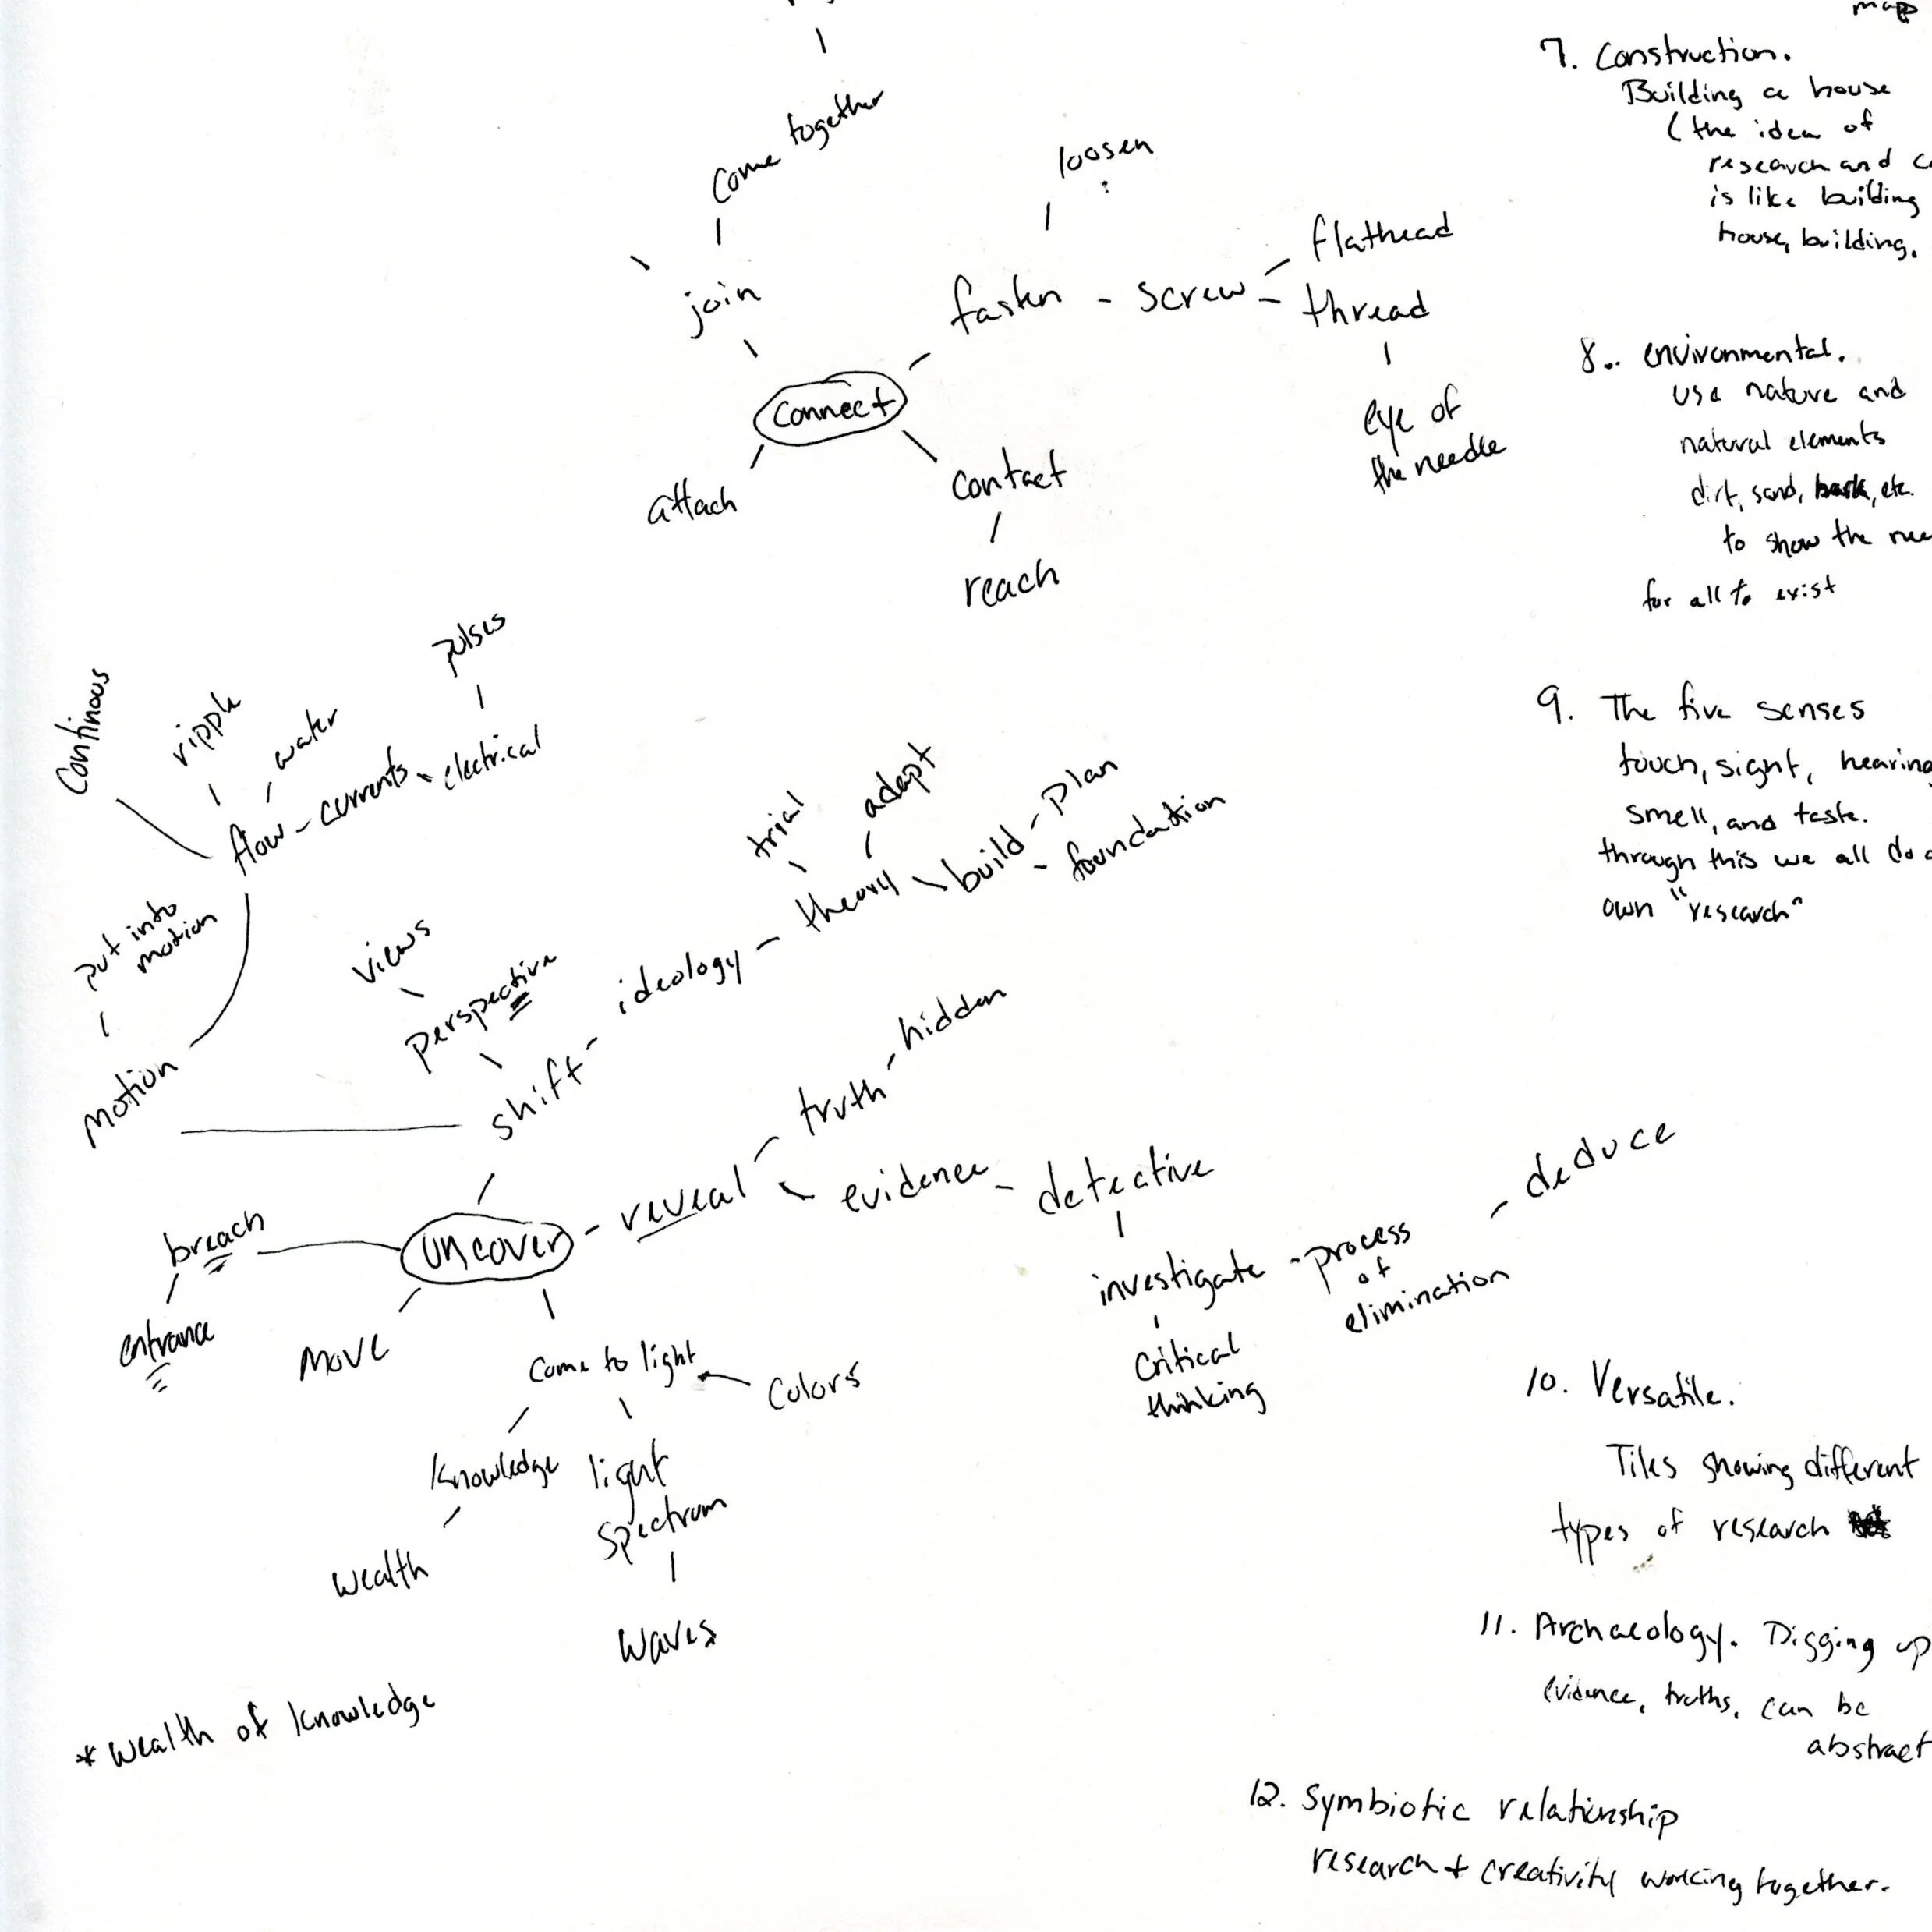 come together
loosen
join
fasten - screw - flathead
thread
eye of
the needle
connect
attach
contact
reach
pulses
Continous
ripple
water
flow - currents - electrical
put into
motion
motion
views
perspective
shift - ideology - theory - build - plan
trial
adapt
foundation
uncover - reveal - truth - hidden
evidence - detective
investigate - process
of
elimination
- deduce
critical
thinking
breach
entrance
move
come to light
colors
knowledge
light
spectrum
wealth
waves
* wealth of knowledge
map
7. Construction.
Building a house
(the idea of
research and
is like building
house, building.
8.. environmental.
use nature and
natural elements
dirt, sand, bark, etc.
to show the
for all to exist
9. The five senses
touch, sight, hearing
smell, and taste.
through this we all do
own "research"
10. Versatile.
Tiles showing different
types of research
11. Archaeology. Digging up
evidence, truths, can be
abstract
12. Symbiotic relationship
research + creativity working together.